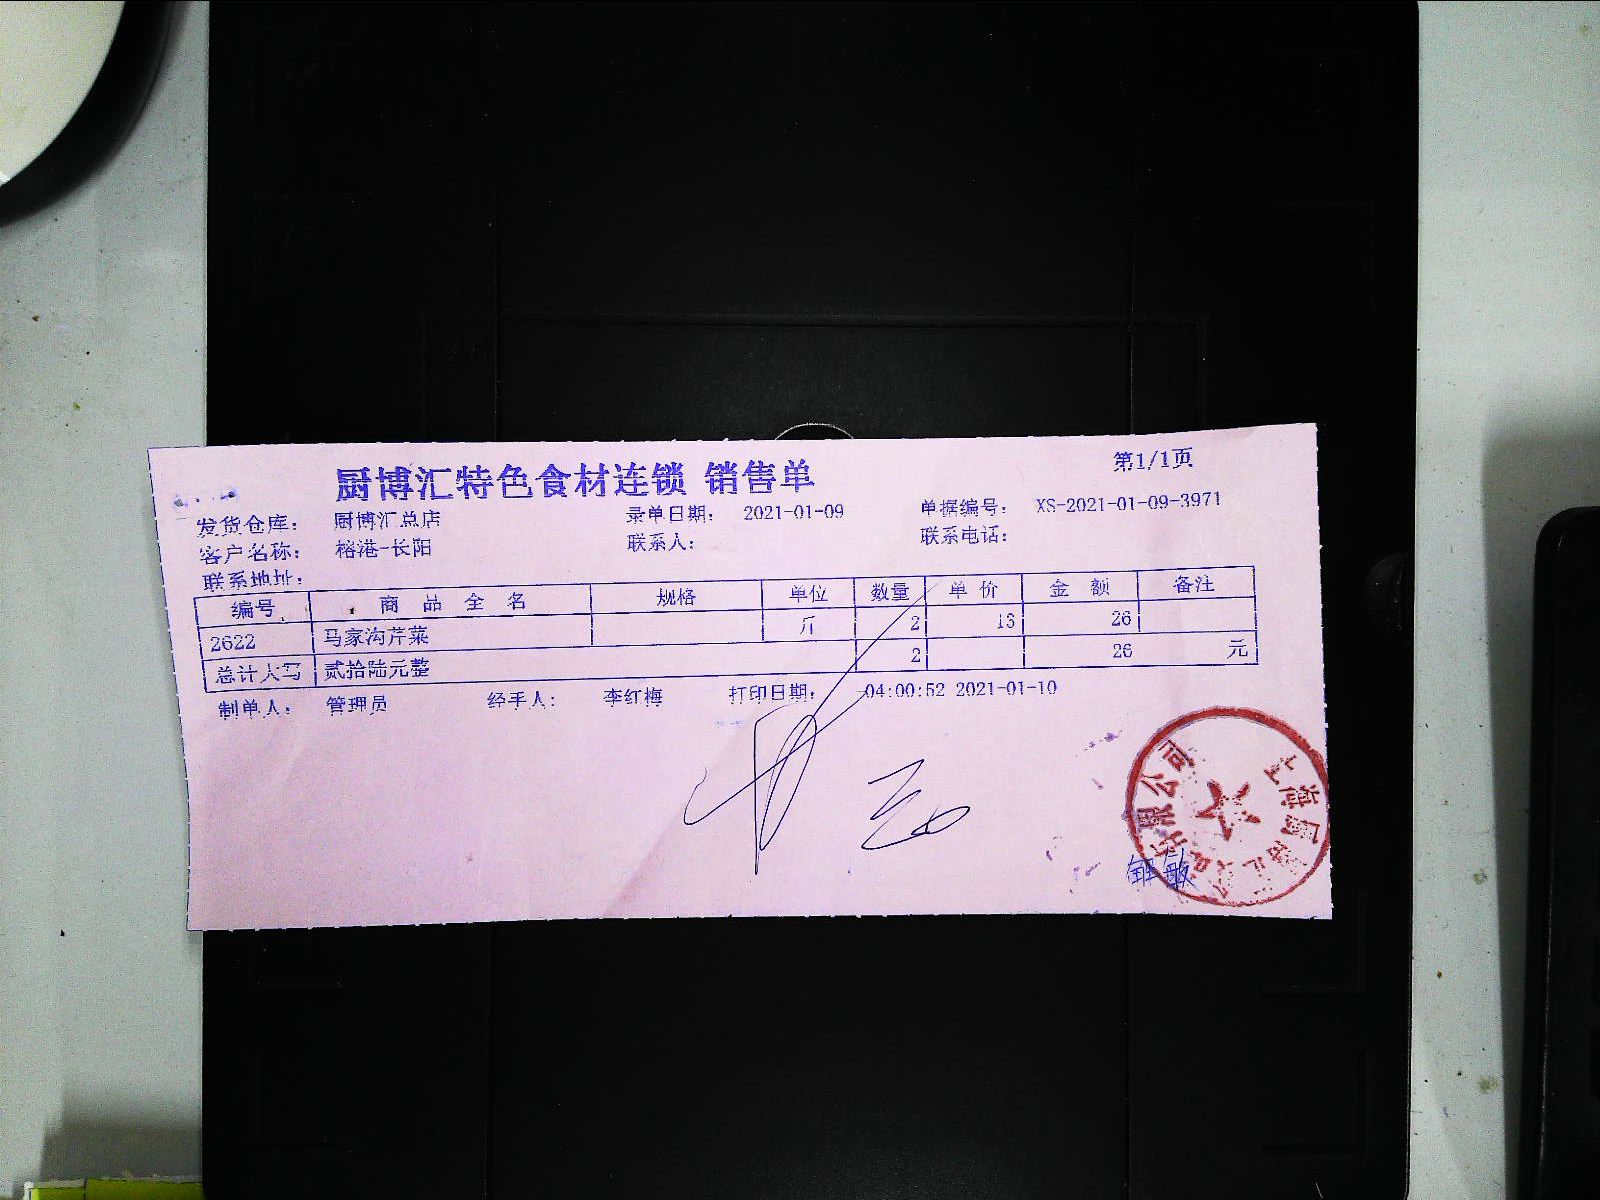 厨博汇特色食材连锁 销售单
第1/1页
发货仓库： 厨博汇总店 录单日期： 2021-01-09 单据编号： XS-2021-01-09-3971
客户名称： 榕港-长阳 联系人： 联系电话：
联系地址：
编号 商品全名 规格 单位 数量 单价 金额 备注
2622 马家沟芹菜 斤 2 13 26
总计大写 贰拾陆元整 2 26 元
制单人： 管理员 经手人： 李红梅 打印日期： 04:00:52 2021-01-10